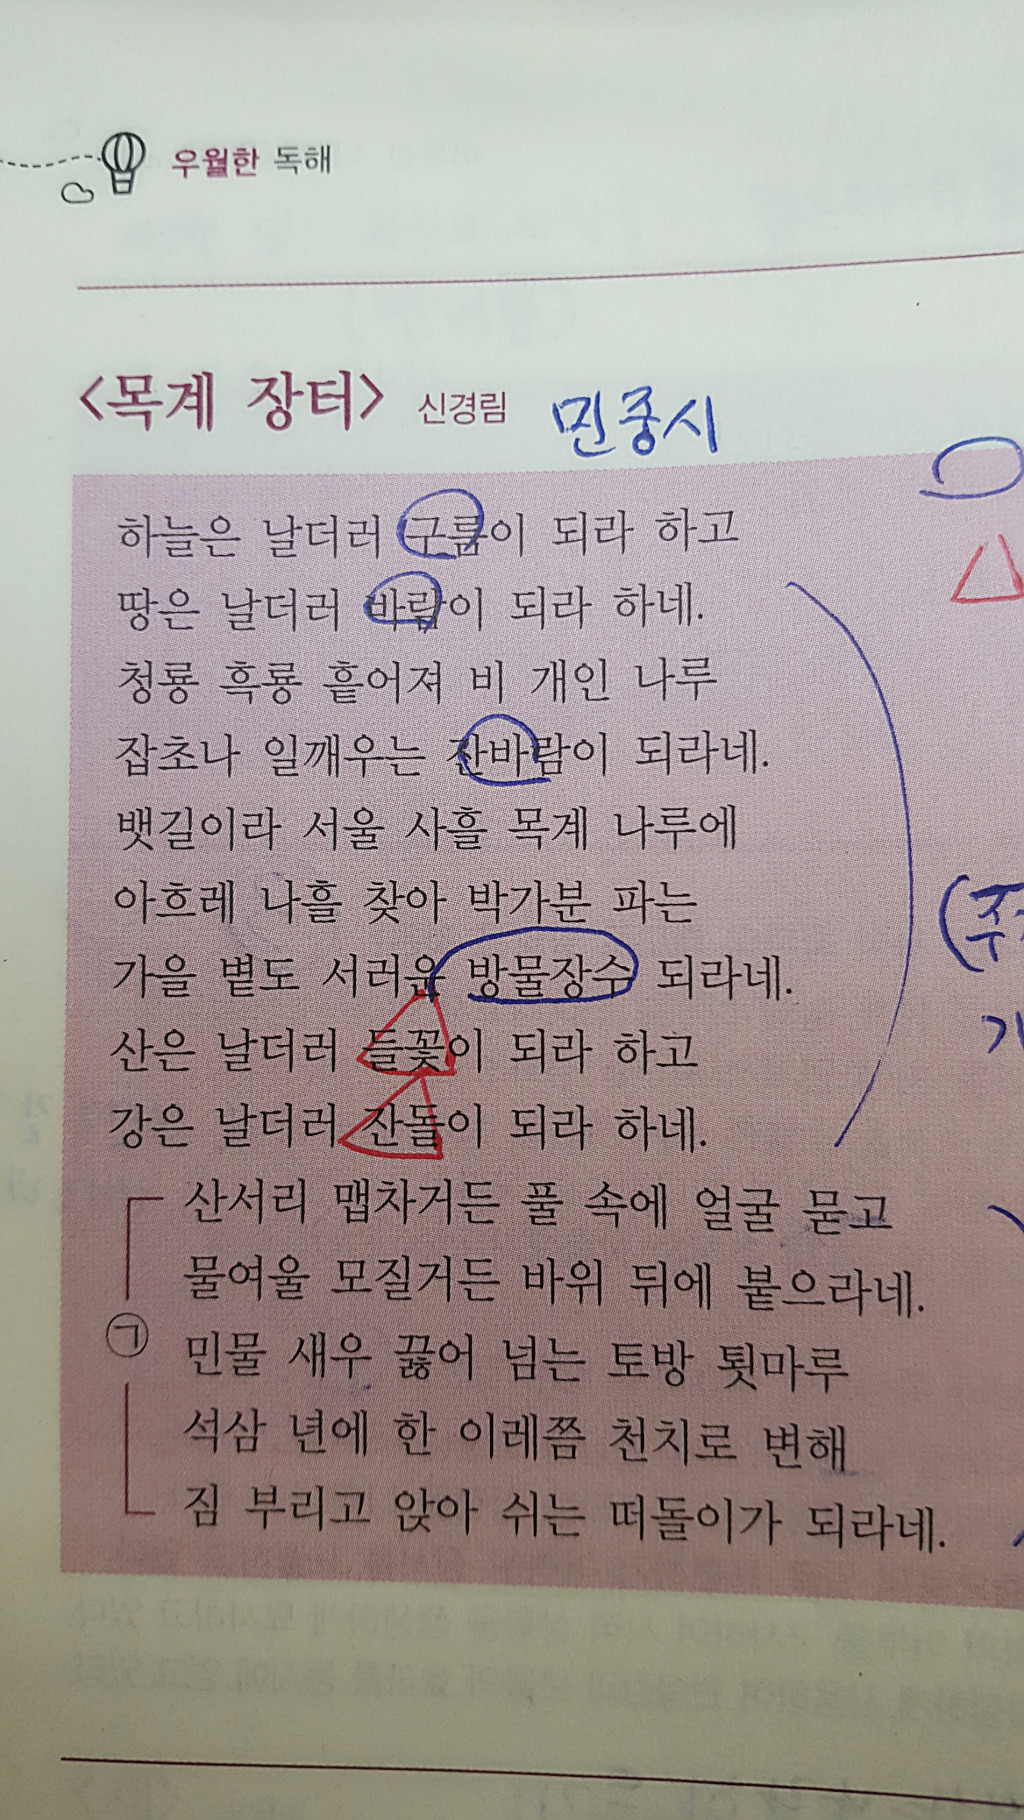 우월한 독해
<목계 장터> 신경림 민중시
하늘은 날더러 구름이 되라 하고
땅은 날더러 바람이 되라 하네.
청룡 흑룡 흩어져 비 개인 나루
잡초나 일깨우는 잔바람이 되라네.
뱃길이라 서울 사흘 목계 나루에
아흐레 나흘 찾아 박가분 파는
가을 볕도 서러운 방물장수 되라네.
산은 날더러 들꽃이 되라 하고
강은 날더러 잔돌이 되라 하네.
산서리 맵차거든 풀 속에 얼굴 묻고
물여울 모질거든 바위 뒤에 붙으라네.
㉠
민물 새우 끓어 넘는 토방 툇마루
석삼 년에 한 이레쯤 천치로 변해
짐 부리고 앉아 쉬는 떠돌이가 되라네.